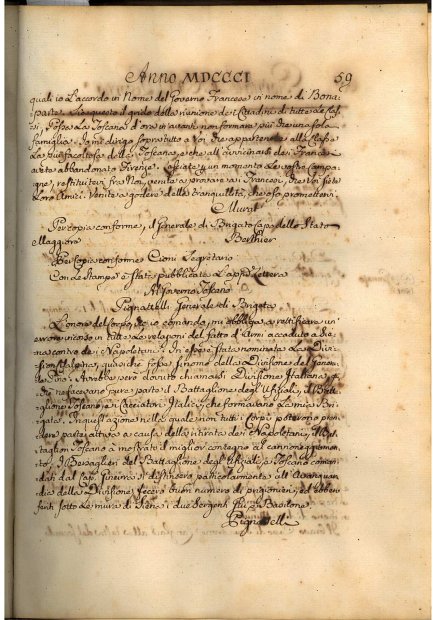 Anno MDCCCI 59
quali io l'accordo in Nome del Governo Francese in nome di Bona=
parte. Sia questo il grido della riunione de i Cittadini di tutte le Clas=
si, Possa la Toscana d'ora in avanti non formare più che una sola
famiglia. Io mi dirigo sopra tutto a Voi che appartenete alla Classe
la più facoltosa della Toscana, e che all'avvicinarsi dei Francesi
avete abbandonato Firenze. Lasciate un momento le vostre Campa=
gne, restituitevi fra Noi, venite a provare ai Francesi, che Voi siete
Loro Amici. Venite a godere della tranquillità, che oso promettervi.
Murat
Per copia conforme, il Generale di Brigata Capo dello Stato
Maggiore Berthier
Per Copia conforme Cioni Segretario
Con le Stampe è stata pubblicata la appresso Lettera
Al Governo Toscano
Pignattelli Generale di Brigata
L'onore del Corpo, che io comando, mi obbliga a rettificare un
errore incorso in tutte le relazioni del fatto d'Armi accaduto a Sie=
na contro de i Napoletani. In esse è stata nominata la Divi=
sione Cisalpina, quasi che fosse in nome della Divisione del gene=
rale Pino. Avrebbe però dovuto chiamarsi Divisione Italiana, poi=
chè facevano pure parte il Battaglione degl'Ufiziali, il Batta=
glione Toscano, e i Cacciatori Italici, che formavano la mia Bri=
gata. In quest'azione nella quale non tutti i Corpi potettero pren=
dere parte attiva a causa della ritirata de i Napoletani, il Bat=
taglion Toscano a mostrato il miglior contegno al cannoneggiamen=
to. I Bersaglieri del Battaglione degl'Ufiziali, e Toscano coman=
dati dal Cap. si distinsero particolarmente all'Avanguar=
dia della Divisione, fecero buon numero di prigionieri, ed ebbero
feriti sotto le mura di Siena i due Sergenti
Pignattelli